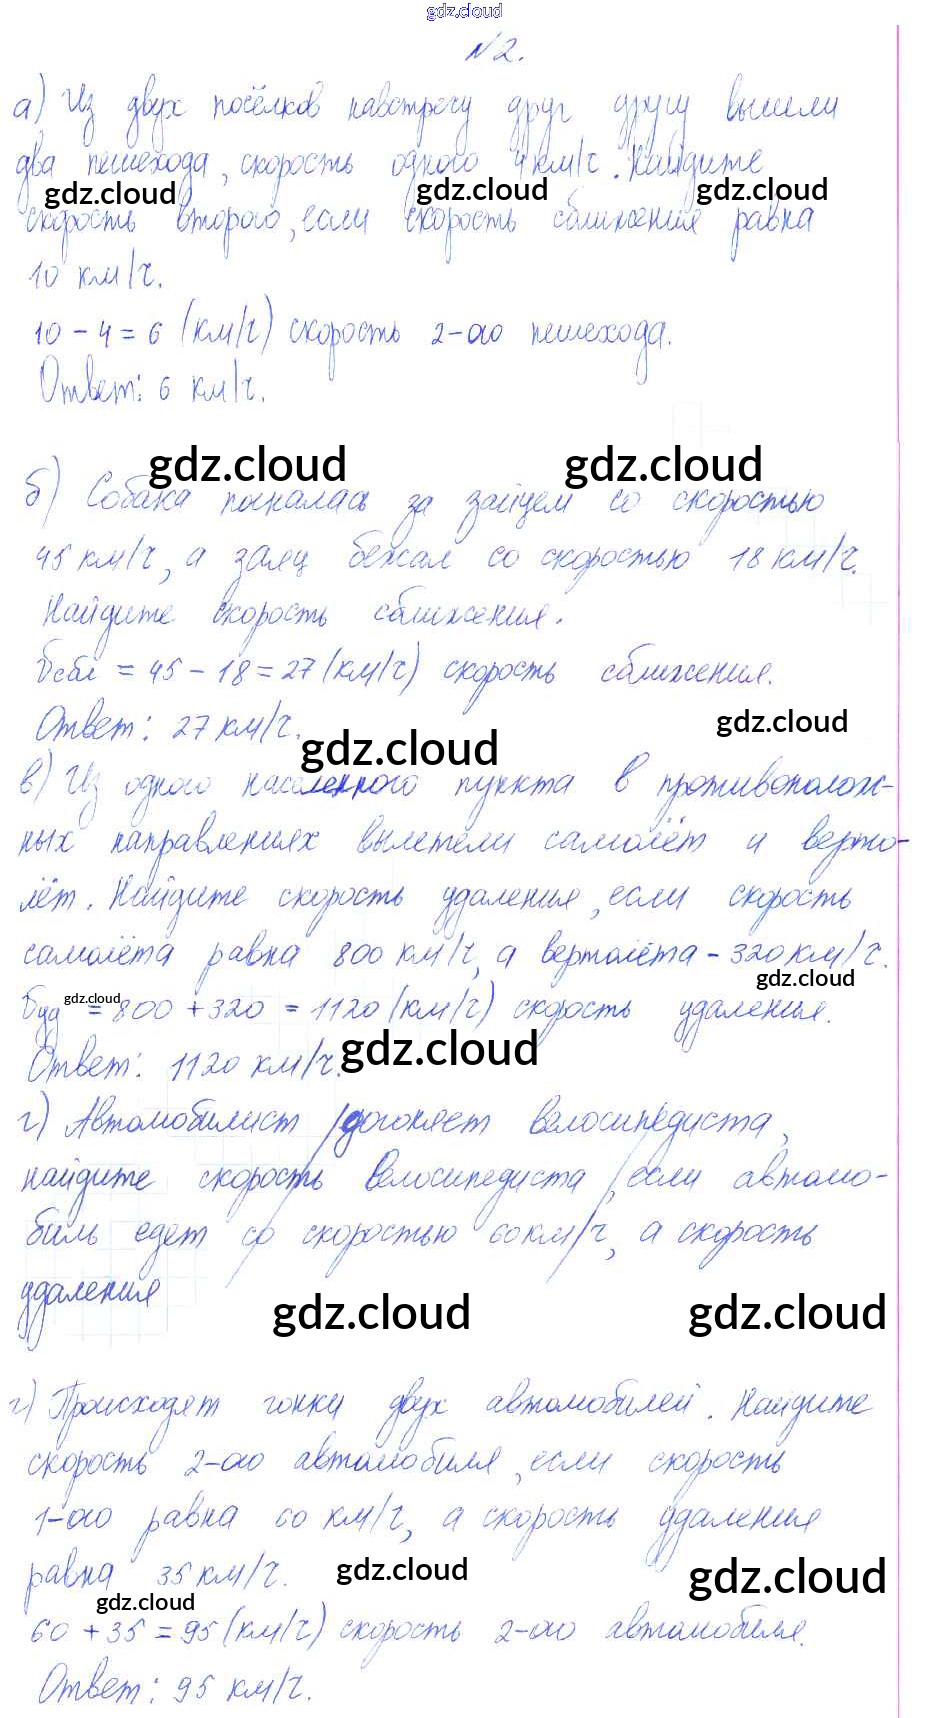 gdz.cloud
№2.
а) Из двух посёлков навстречу друг другу вышли
два пешехода, скорость одного 4 км/ч. Найдите
gdz.cloud gdz.cloud gdz.cloud
скорость второго, если скорость сближения равна
10 км/ч.
10 - 4 = 6 (км/ч) скорость 2-ого пешехода.
Ответ: 6 км/ч.
gdz.cloud gdz.cloud
б) Собака погналась за зайцем со скоростью
45 км/ч, а заяц бежал со скоростью 18 км/ч.
Найдите скорость сближения.
υсбл = 45 - 18 = 27 (км/ч) скорость сближения.
Ответ: 27 км/ч.
gdz.cloud gdz.cloud
в) Из одного населенного пункта в противополож-
ных направлениях вылетели самолёт и верто-
лёт. Найдите скорость удаления, если скорость
самолёта равна 800 км/ч, а вертолёта - 320 км/ч.
gdz.cloud gdz.cloud
υуд = 800 + 320 = 1120 (км/ч) скорость удаления.
Ответ: 1120 км/ч.
gdz.cloud
г) Автомобилист догоняет велосипедиста,
найдите скорость велосипедиста, если автомо-
биль едет со скоростью 60 км/ч, а скорость
удаления
gdz.cloud gdz.cloud
г) Происходят гонки двух автомобилей. Найдите
скорость 2-ого автомобиля, если скорость
1-ого равна 60 км/ч, а скорость удаления
равна 35 км/ч.
gdz.cloud gdz.cloud gdz.cloud
60 + 35 = 95 (км/ч) скорость 2-ого автомобиля.
Ответ: 95 км/ч.